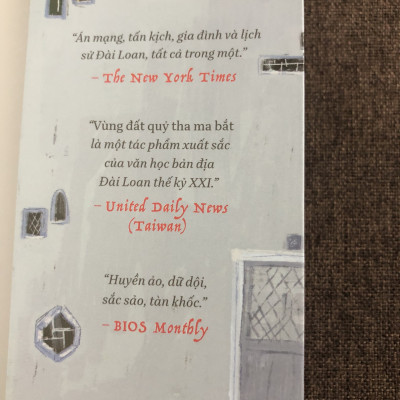 “Án mạng, tấn kịch, gia đình và lịch
sử Đài Loan, tất cả trong một.”
– The New York Times
“Vùng đất quỷ tha ma bắt
là một tác phẩm xuất sắc
của văn học bản địa
Đài Loan thế kỷ XXI.”
– United Daily News
(Taiwan)
“Huyền ảo, dữ dội,
sắc sảo, tàn khốc.”
– BIOS Monthly